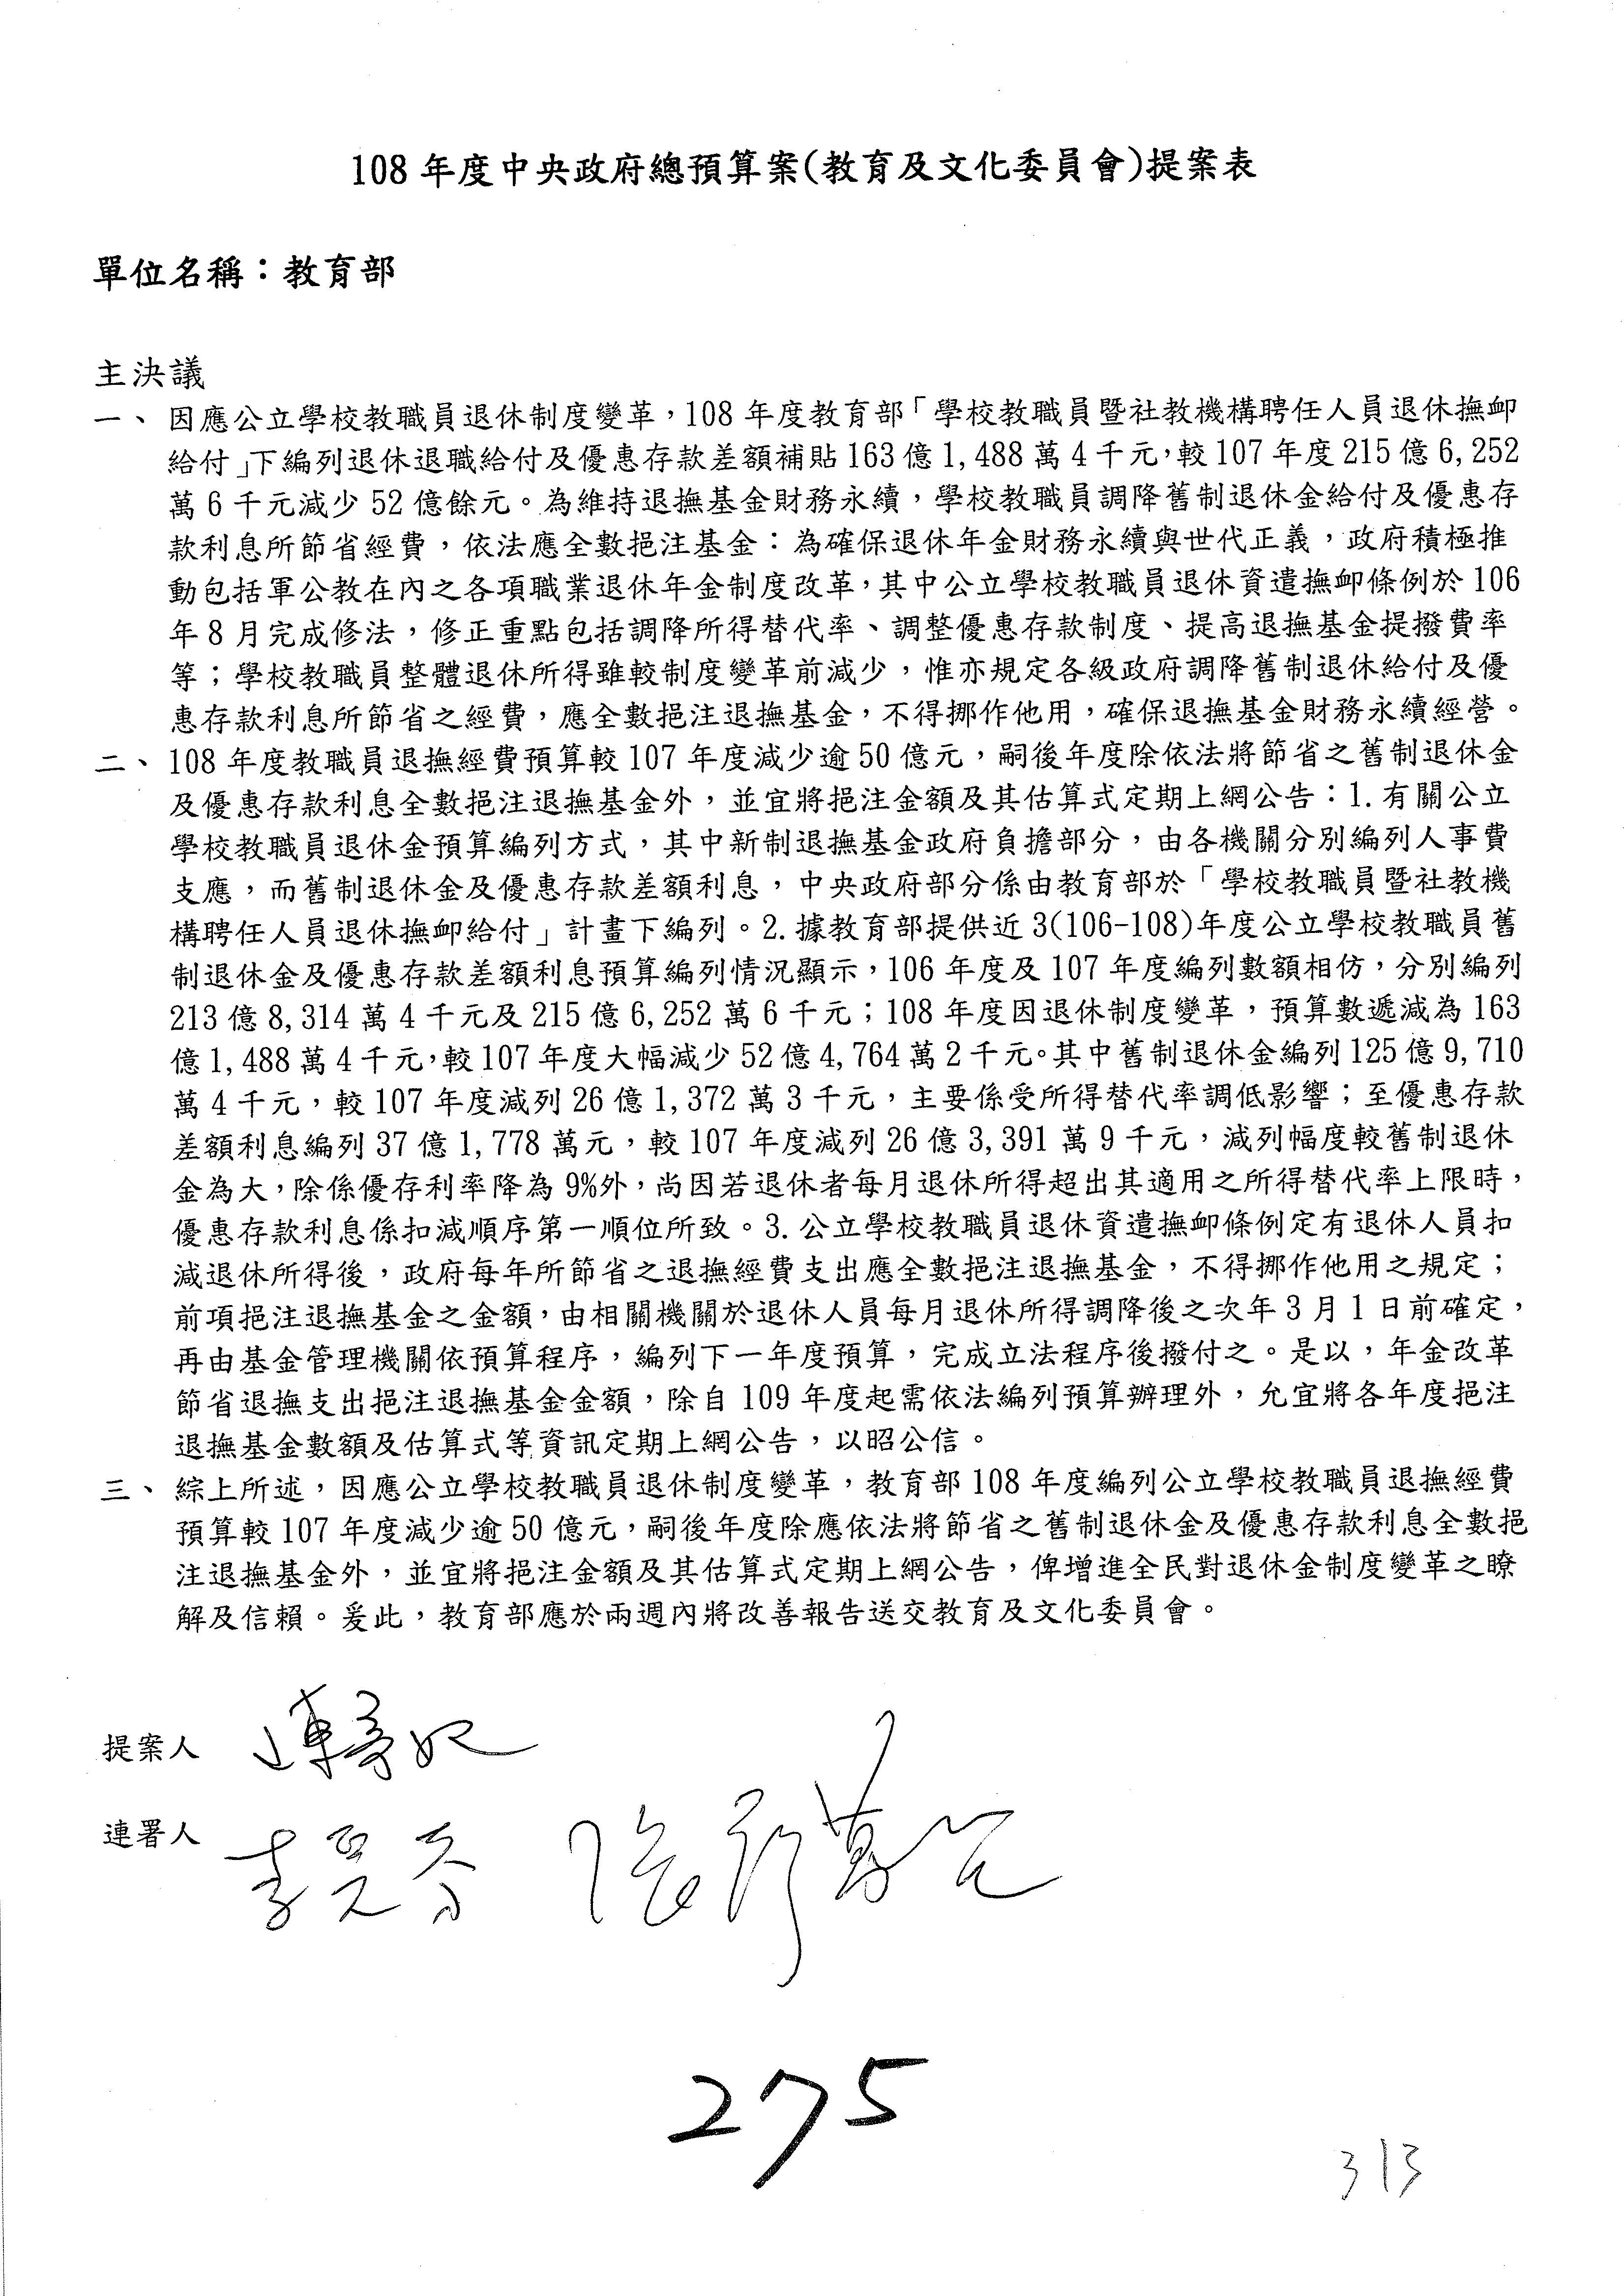 108年度中央政府總預算案(教育及文化委員會)提案表
單位名稱：教育部
主決議
一、因應公立學校教職員退休制度變革，108年度教育部「學校教職員暨社教機構聘任人員退休撫卹
給付」下編列退休退職給付及優惠存款差額補貼163億1,488萬4千元，較107年度215億6,252
萬6千元減少52億餘元。為維持退撫基金財務永續，學校教職員調降舊制退休金給付及優惠存
款利息所節省經費，依法應全數挹注基金：為確保退休年金財務永續與世代正義，政府積極推
動包括軍公教在內之各項職業退休年金制度改革，其中公立學校教職員退休資遣撫卹條例於106
年8月完成修法，修正重點包括調降所得替代率、調整優惠存款制度、提高退撫基金提撥費率
等；學校教職員整體退休所得雖較制度變革前減少，惟亦規定各級政府調降舊制退休給付及優
惠存款利息所節省之經費，應全數挹注退撫基金，不得挪作他用，確保退撫基金財務永續經營。
二、108年度教職員退撫經費預算較107年度減少逾50億元，嗣後年度除依法將節省之舊制退休金
及優惠存款利息全數挹注退撫基金外，並宜將挹注金額及其估算式定期上網公告：1.有關公立
學校教職員退休金預算編列方式，其中新制退撫基金政府負擔部分，由各機關分別編列人事費
支應，而舊制退休金及優惠存款差額利息，中央政府部分係由教育部於「學校教職員暨社教機
構聘任人員退休撫卹給付」計畫下編列。2.據教育部提供近3(106-108)年度公立學校教職員舊
制退休金及優惠存款差額利息預算編列情況顯示，106年度及107年度編列數額相仿，分別編列
213億8,314萬4千元及215億6,252萬6千元；108年度因退休制度變革，預算數遞減為163
億1,488萬4千元，較107年度大幅減少52億4,764萬2千元。其中舊制退休金編列125億9,710
萬4千元，較107年度減列26億1,372萬3千元，主要係受所得替代率調低影響；至優惠存款
差額利息編列37億1,778萬元，較107年度減列26億3,391萬9千元，減列幅度較舊制退休
金為大，除係優存利率降為9%外，尚因若退休者每月退休所得超出其適用之所得替代率上限時，
優惠存款利息係扣減順序第一順位所致。3.公立學校教職員退休資遣撫卹條例定有退休人員扣
減退休所得後，政府每年所節省之退撫經費支出應全數挹注退撫基金，不得挪作他用之規定；
前項挹注退撫基金之金額，由相關機關於退休人員每月退休所得調降後之次年3月1日前確定，
再由基金管理機關依預算程序，編列下一年度預算，完成立法程序後撥付之。是以，年金改革
節省退撫支出挹注退撫基金金額，除自109年度起需依法編列預算辦理外，允宜將各年度挹注
退撫基金數額及估算式等資訊定期上網公告，以昭公信。
三、綜上所述，因應公立學校教職員退休制度變革，教育部108年度編列公立學校教職員退撫經費
預算較107年度減少逾50億元，嗣後年度除應依法將節省之舊制退休金及優惠存款利息全數挹
注退撫基金外，並宜將挹注金額及其估算式定期上網公告，俾增進全民對退休金制度變革之瞭
解及信賴。爰此，教育部應於兩週內將改善報告送交教育及文化委員會。
提案人
連署人
275
313